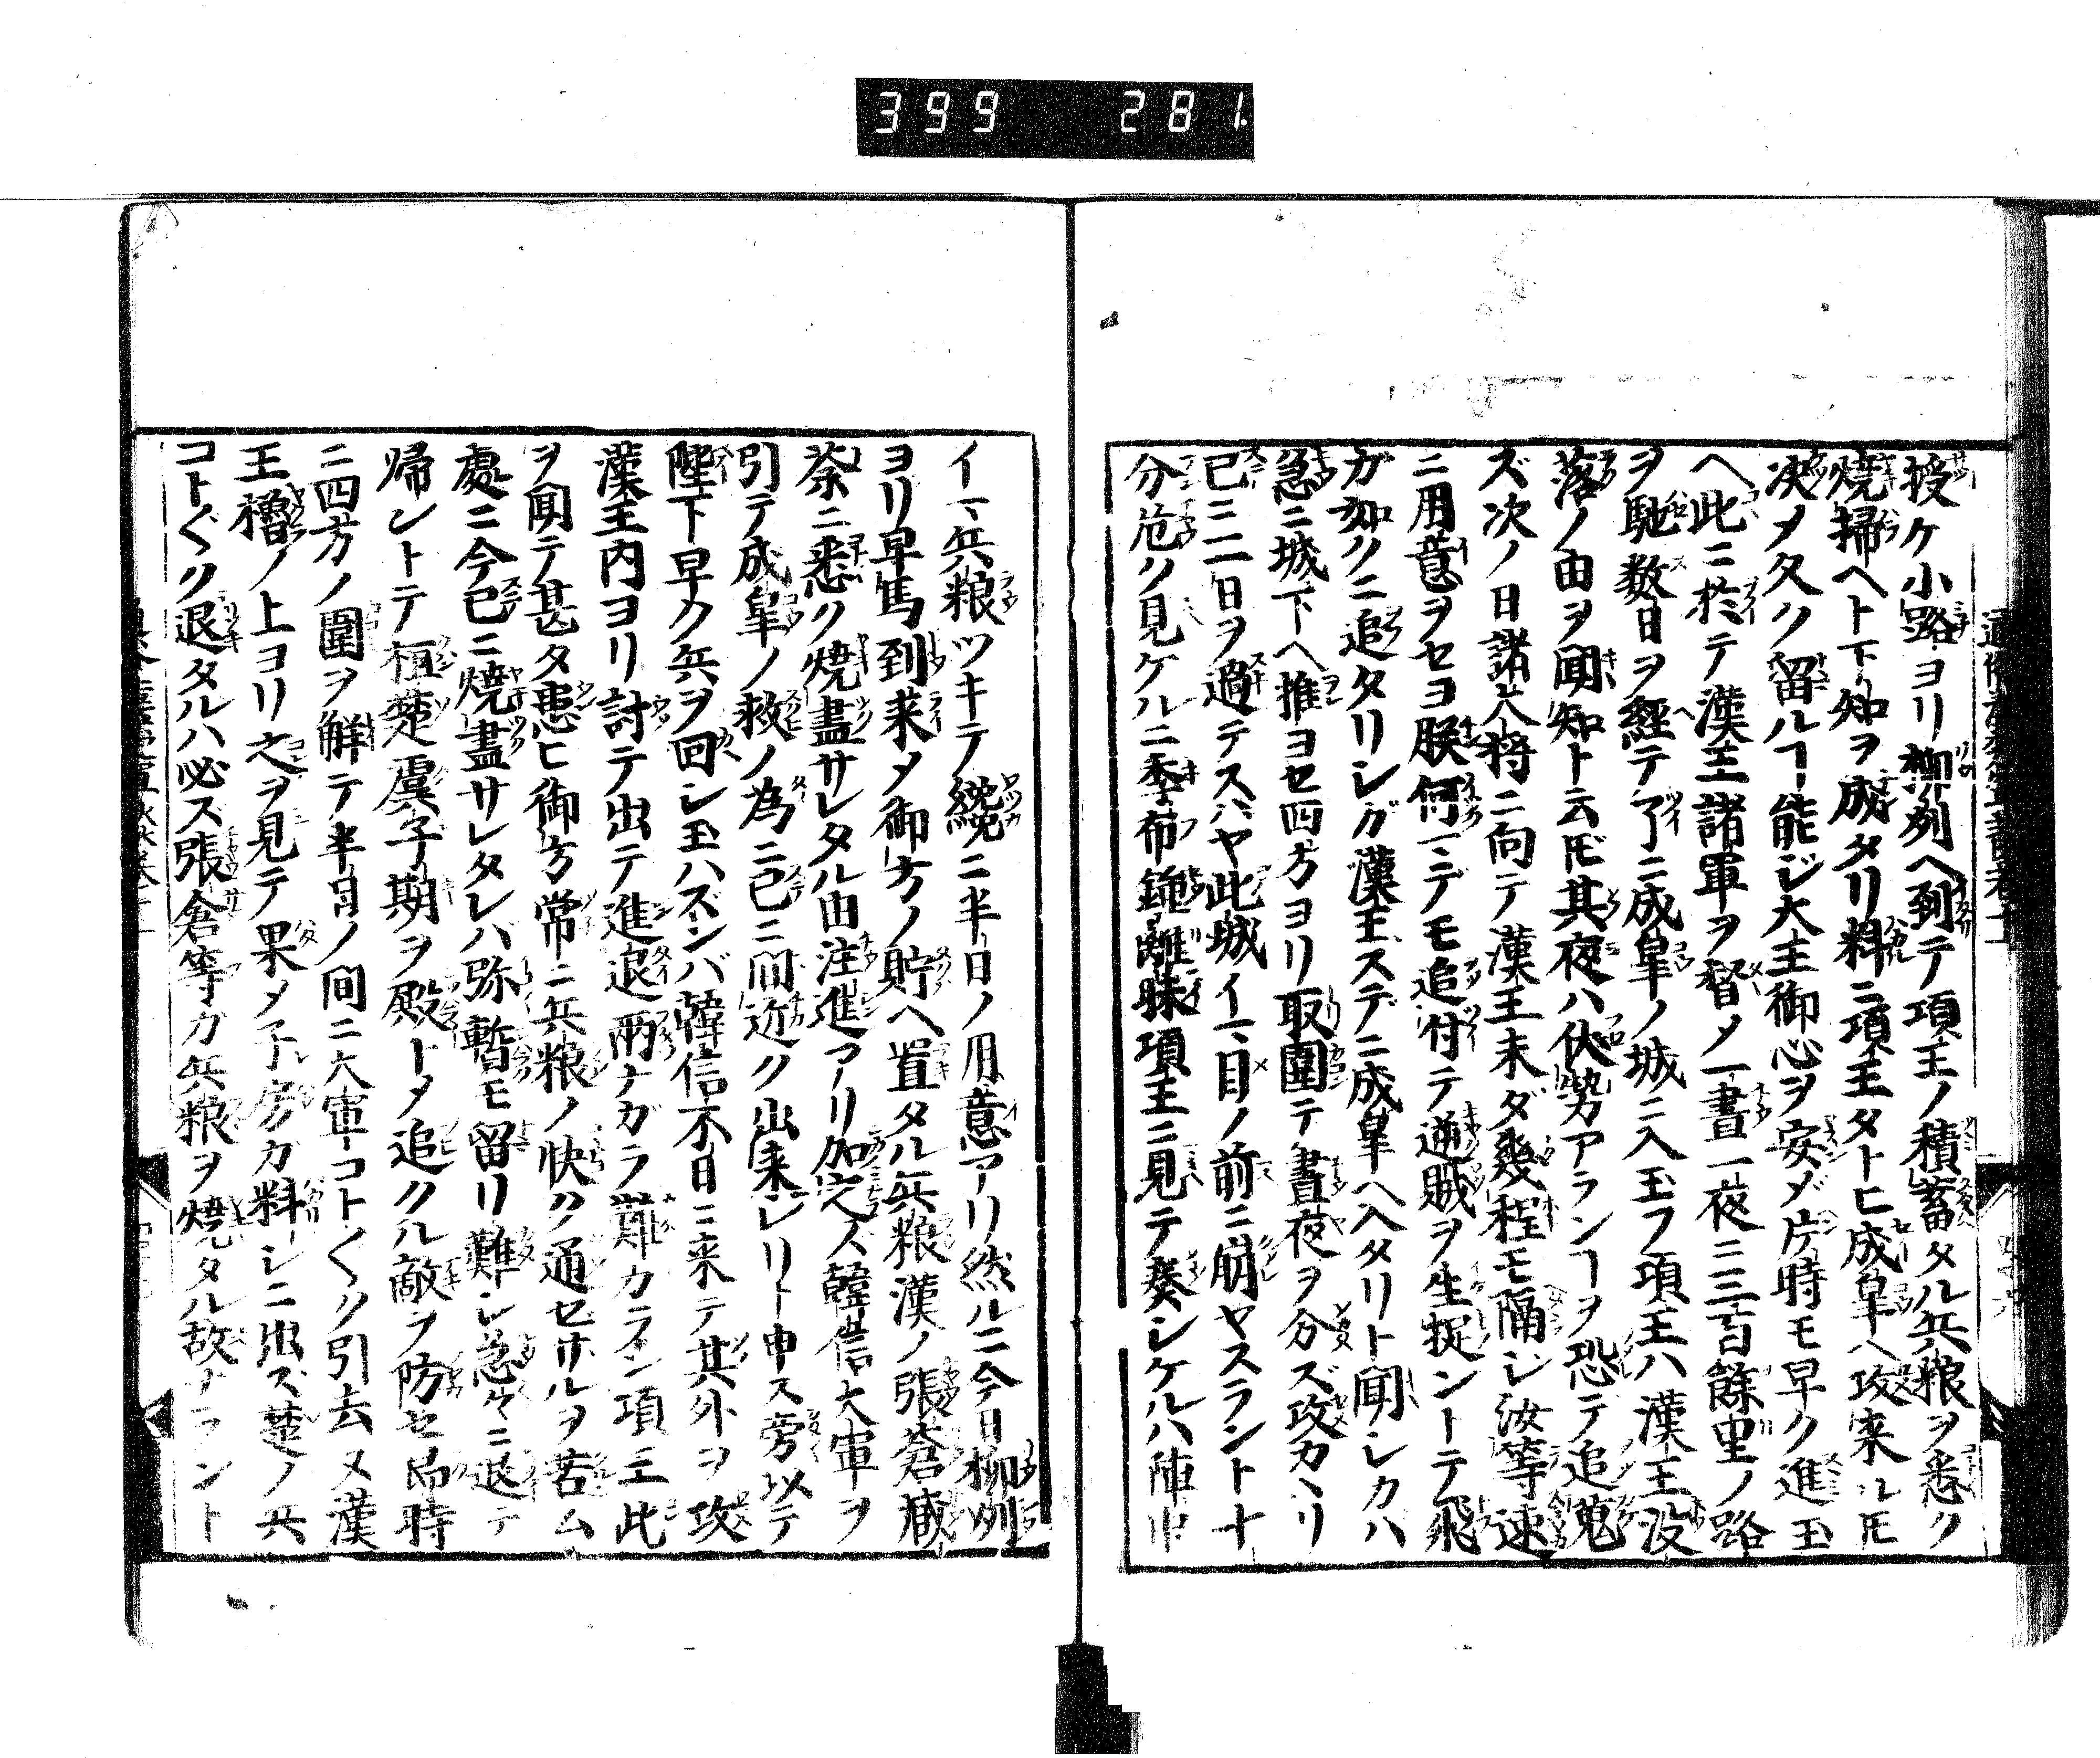 399 281
授ケ小路ヨリ柳列ヘ到テ項王ノ積蓄タル兵粮ヲ悉ク
焼掃ヘト下知ヲ成タリ料ニ項王タトヒ成皐ヘ攻来ルモ
决メ久ク留ルヿ能ジ大王御心ヲ安ジ片時モ早ク進玉
ヘ此ニ於テ漢王諸軍ヲ督メ一晝一夜ニ三百餘里ノ路
ヲ馳数日ヲ經テ了ニ成皐ノ城ニ入玉フ項王ハ漢王没
落ノ由ヲ聞知ト云ㇳモ其夜ハ伏勢アランヿヲ恐テ追蒐
ズ次ノ日諸大将ニ向テ漢王未ダ幾程モ隔シ汝等速
ニ用意ヲセヨ朕何マデモ追付テ逋賊ヲ生捉ントテ飛
ガ如クニ追タリシガ漢王ステニ成皐ヘ入タリト聞シカハ
急ニ城下ヘ推ヨセ四方ヨリ取圍テ晝夜ヲ分ズ攻カヽリ
已ニ二日ヲ過テスハヤ此城イマ目ノ前ニ崩ヤスラント十
分危ク見ケルニ季布鍾離昧項王ニ見テ奏シケルハ陣中
イマ兵粮ツキテ纔ニ半日ノ用意アリ然ルニ今日柳列
ヨリ早馬到来メ御方ノ貯ヘ置タル兵粮漢ノ張蒼臧
荼ニ悉ク焼盡サレタル由注進アリ加之ス韓信大軍ヲ
引テ成皐ノ救ノ為ニ已ニ間近ク出来レリト申ス旁以テ
陛下早ク兵ヲ回シ玉ハズンバ韓信不日ニ来テ其外ヲ攻
漢王内ヨリ討テ出テ進退兩ナガラ難カラン項王此
ヲ聞テ甚タ患ヒ御方常ニ兵粮ノ快ク通セサルヲ苦ム
處ニ今已ニ焼盡サレタレハ弥暫モ留リ難シ急々ニ退テ
帰ントテ桓楚虞子期ヲ殿トメ追クル敵ヲ防セ即時
ニ四方ノ圍ヲ解テ半日ノ間ニ大軍コト〱ク引去ヌ漢
王櫓ノ上ヨリ之ヲ見テ果メ子房カ料シニ出ズ楚ノ兵
コト〲ク退タルハ必ス張倉等カ兵粮ヲ焼タル故ナラント